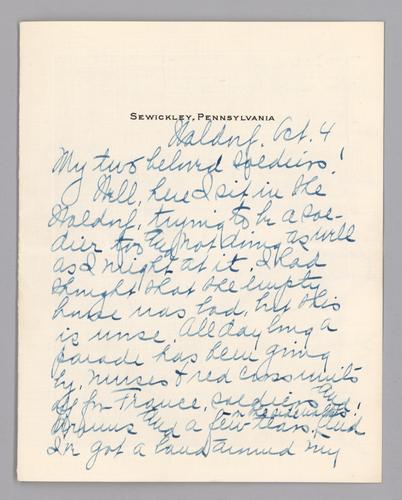 SEWICKLEY, PENNSYLVANIA
Waldorf. Oct. 4
My two beloved soldiers!
Well, here I sit in the
Waldorf, trying to be a sol-
dier too, & not doing as well
as I might at it. I had
thought that the empty
house was bad, but this
is worse. All day long a
parade has been going
by, nurses & red cross units
off for France, soldiers, and
drums and a few tears. And
I've got a band around my